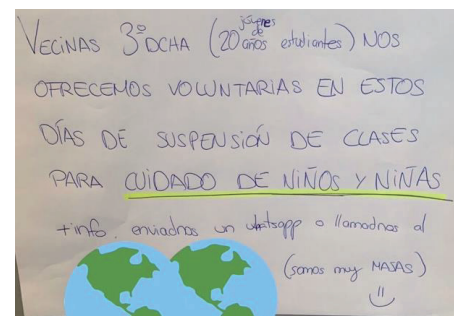 VECINAS 3º DCHA (20 años jóvenes de estudiantes) NOS
OFRECEMOS VOLUNTARIAS EN ESTOS
DÍAS DE SUSPENSIÓN DE CLASES
PARA CUIDADO DE NIÑOS Y NIÑAS
+info. enviadnos un whatsapp o llamadnos al
(somos muy MAJAS)